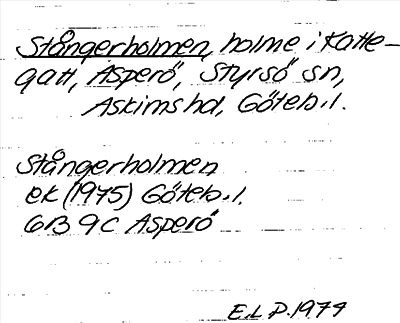 Stångerholmen, holme i Katte-
gatt, Asperö, Styrsö sn,
Askims hd, Göteb. l.
Stångerholmen
ek (1975) Göteb. l.
6B 9c Asperö
E.L.P. 1979